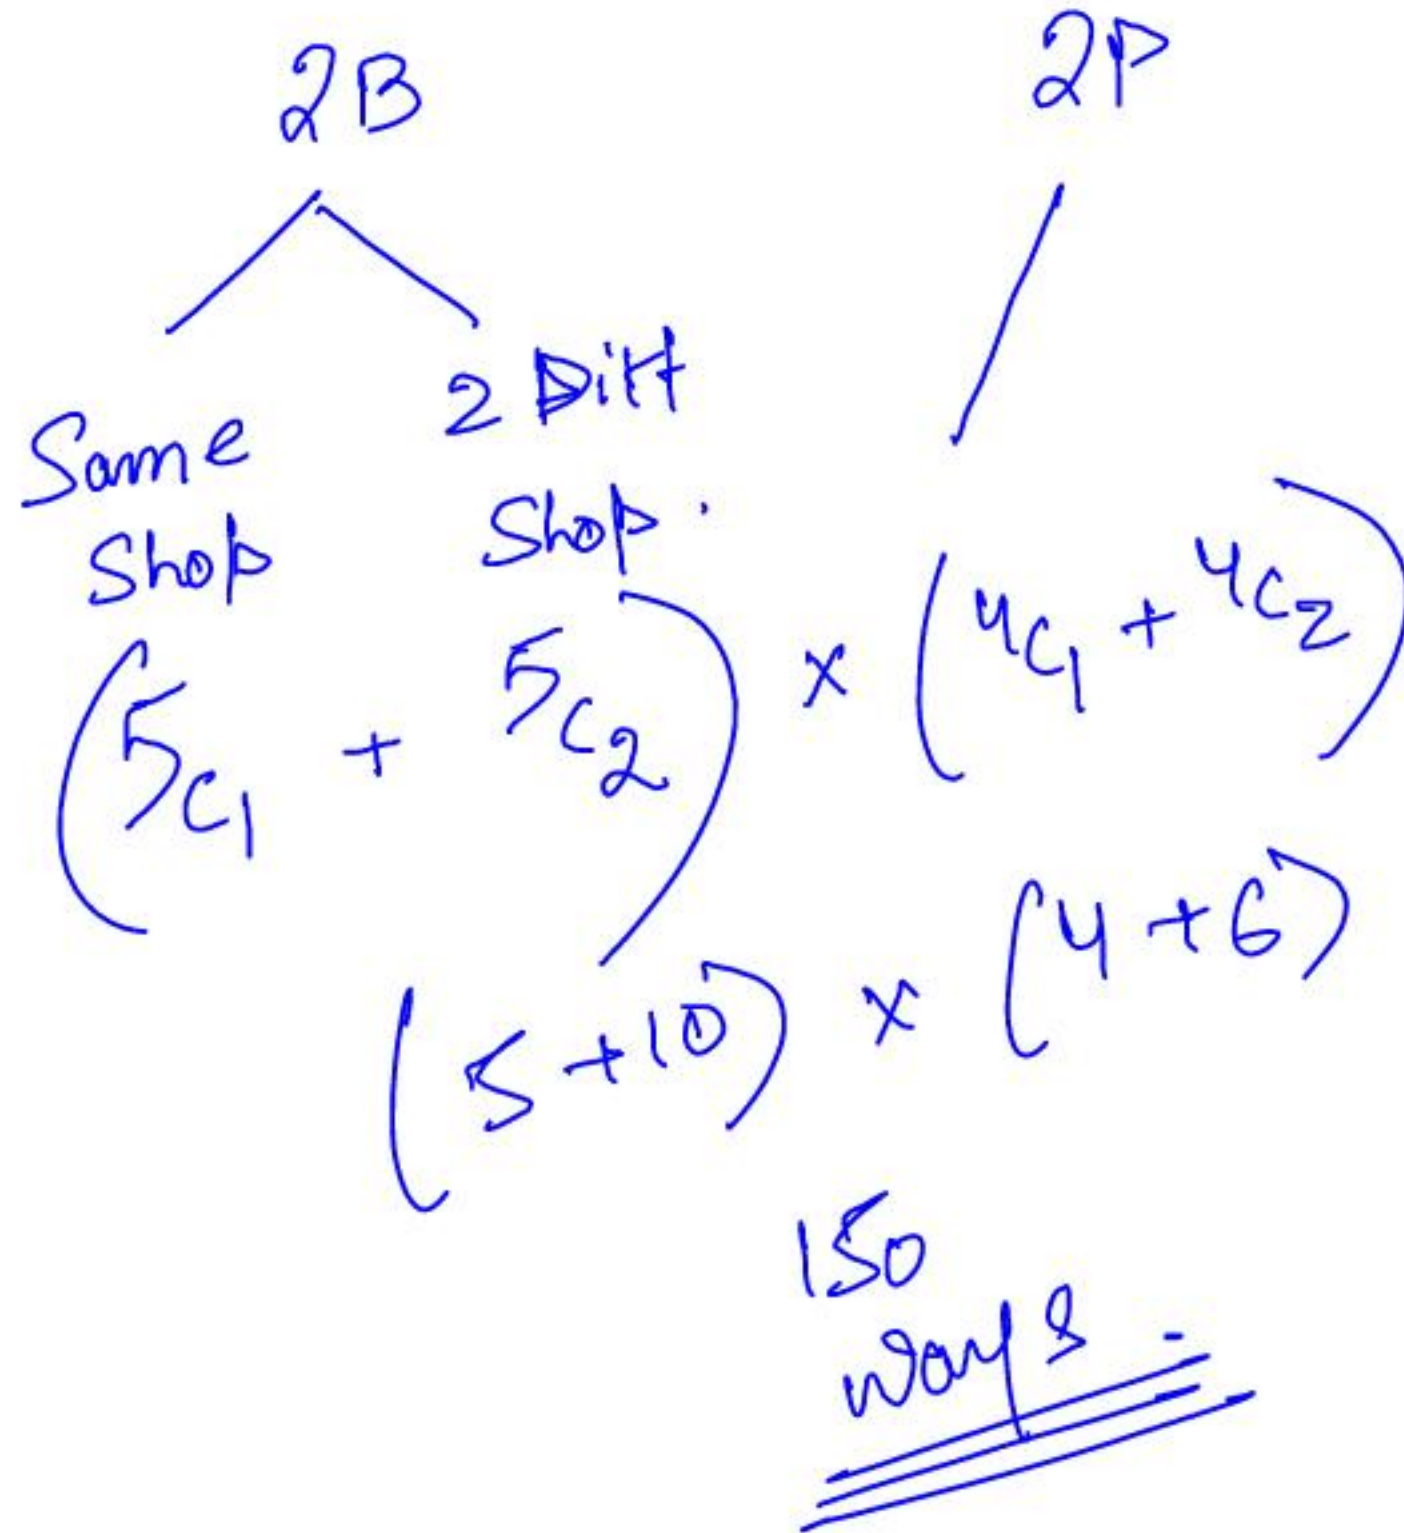 2B 2P
Same 2 Diff
Shop Shop.
(5C1 + 5C2) × (4C1 + 4C2)
(5+10) × (4+6)
150
ways.